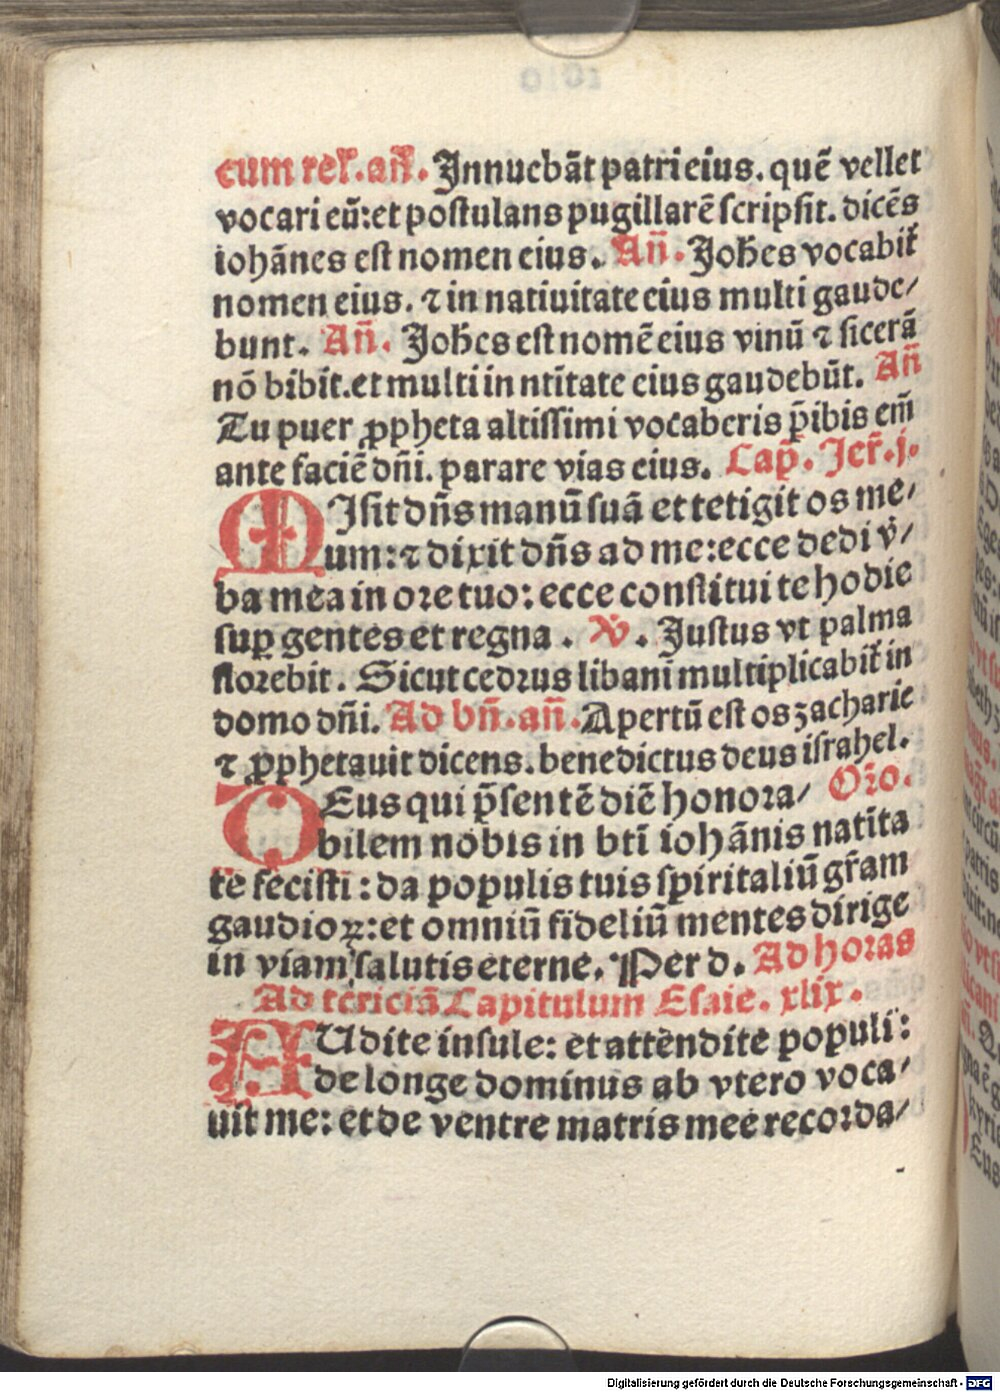 cum rel̄. añ. Innuebāt patri eius. quē vellet
vocari eū: et postulans pugillarē scripsit. dicēs
iohānes est nomen eius. Añ. Joh̄es vocabit̄
nomen eius. ⁊ in natiuitate eius multi gaude/
bunt. Añ. Joh̄es est nomē eius vinū ⁊ sicerā
nō bibit. et multi in nt̄itate eius gaudebūt. Añ
Tu puer ꝓpheta altissimi vocaberis p̄ibis em̄
ante faciē dn̄i. parare vias eius. Cap̄. Jer̄. j.
MIsit dn̄s manū suā et tetigit os me/
um: ⁊ dixit dn̄s ad me: ecce dedi v̄/
ba mea in ore tuo: ecce constitui te hodie
suꝑ gentes et regna. ℣. Justus vt palma
florebit. Sicut cedrus libani multiplicabit̄ in
domo dn̄i. Ad bn̄. añ. Apertū est os zacharie
⁊ ꝓphetauit dicens. benedictus deus israhel.
DEus qui p̄sentē diē honora/ Oro.
bilem nobis in bt̄i iohānis natīta
te fecisti: da populis tuis spiritaliū gr̄am
gaudioꝝ: et omniū fideliū mentes dirige
in viam salutis eterne. Per d. Ad horas
Ad terciā Capitulum Esaie. xlix.
AUdite insule: et attendite populi:
de longe dominus ab vtero voca/
uit me: et de ventre matris mee recorda/
Digitalisierung gefördert durch die Deutsche Forschungsgemeinschaft - DFG